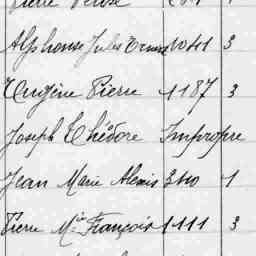 Pierre
Alphonse Jules Ernest 1041 3
Eugène Pierre 1187 3
Joseph Théodore Impropre
Jean Marie Alexis 310 1
Pierre M.ie François 1111 3